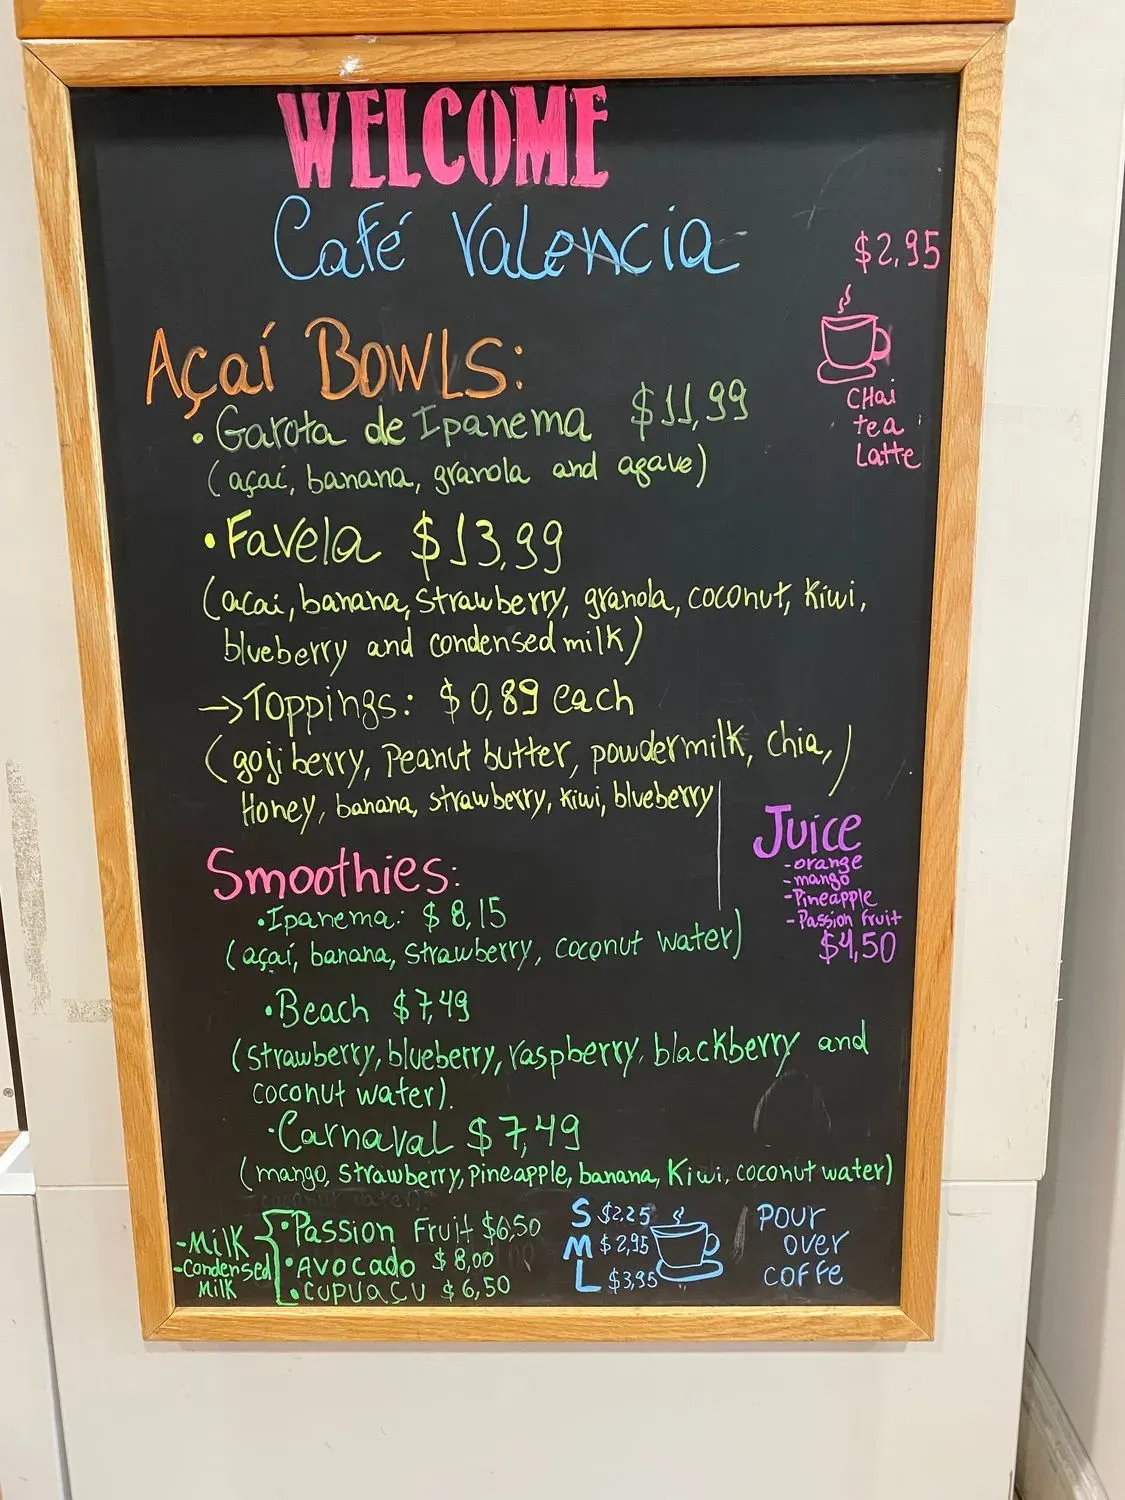 WELCOME
Café Valencia
$2,95
CHai
tea
Latte
Açaí BOWLS:
• Garota de Ipanema $11,99
(açaí, banana, granola and agave)
• Favela $13,99
(acai, banana, strawberry, granola, coconut, Kiwi,
blueberry and condensed milk)
→Toppings: $0,89 each
(goji berry, Peanut butter, powdermilk, chia,)
Honey, banana, strawberry, kiwi, blueberry
Juice
-orange
-mango
-Pineapple
-Passion Fruit
$4,50
Smoothies:
•Ipanema: $8,15
(açaí, banana, strawberry, coconut water)
•Beach $7,49
(strawberry, blueberry, raspberry, blackberry and
coconut water).
•Carnaval $7,49
(mango, strawberry, pineapple, banana, Kiwi, coconut water)
-Milk
-Condensed
Milk
•Passion Fruit $6,50
•Avocado $8,00
•CUPUAÇU $6,50
S $2,25
M $2,95
L $3,95
POUR
OVER
COFFE